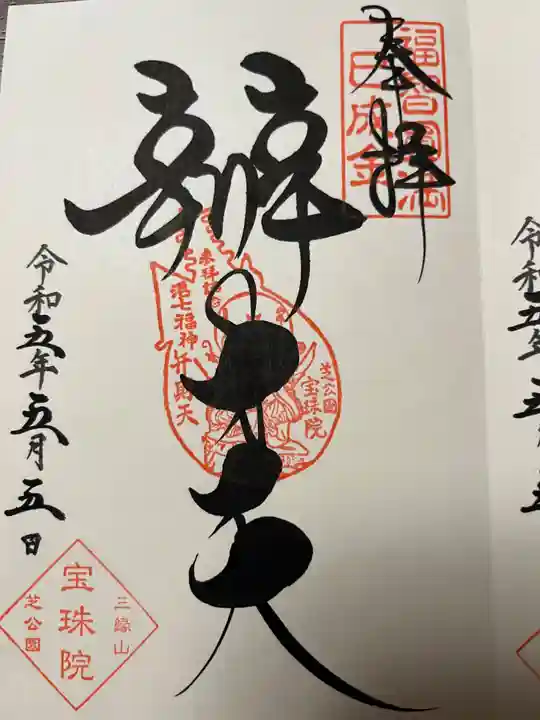 奉拝
福智円満
一日成金
辨才天
参拝記
港七福神弁財天
芝公園
宝珠院
令和五年五月五日
三縁山
宝珠院
芝公園
令和五年